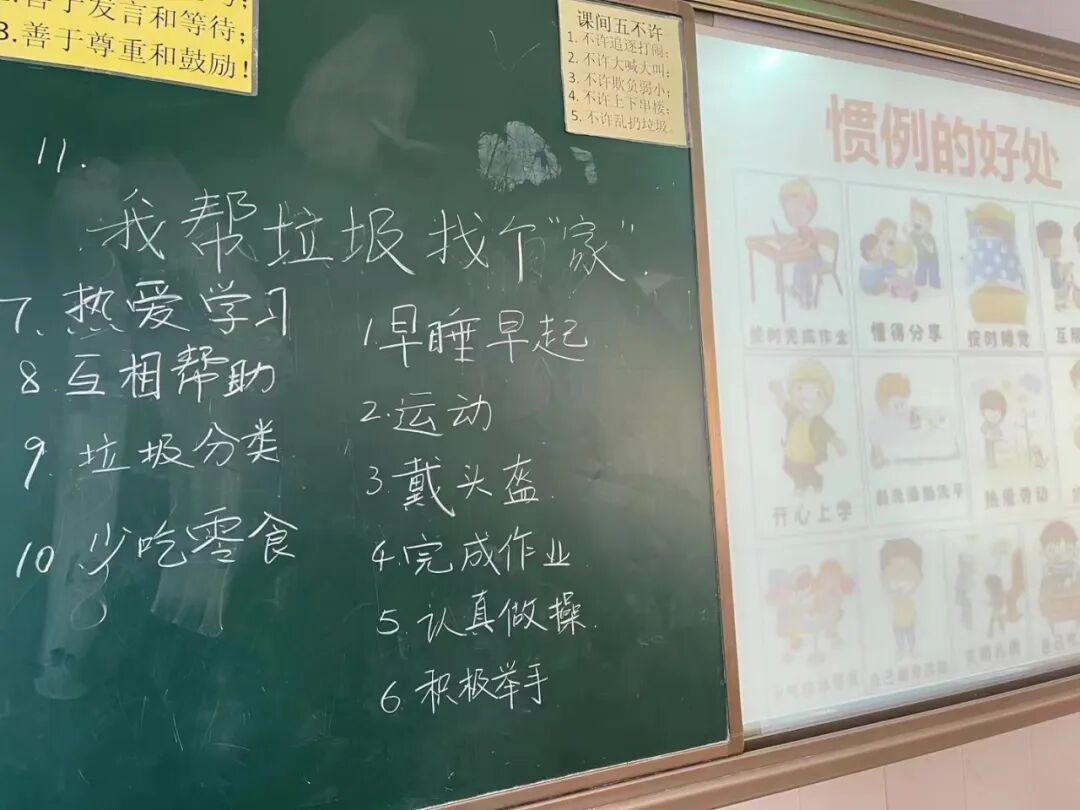 善于发言和等待;
3.善于尊重和鼓励!
课间五不许
1. 不许追逐打闹;
2. 不许大喊大叫;
3. 不许欺负弱小;
4. 不许上下串楼;
5. 不许乱扔垃圾。
11.
我帮垃圾找个"家".
7、热爱学习
8 互相帮助
9. 垃圾分类
10. 少吃零食
1.早睡早起
2.运动
3.戴头盔
4.完成作业
5.认真做操.
6 积极举手
惯例的好处
按时完成作业
懂得分享
按时睡觉
开心上学
热爱劳动